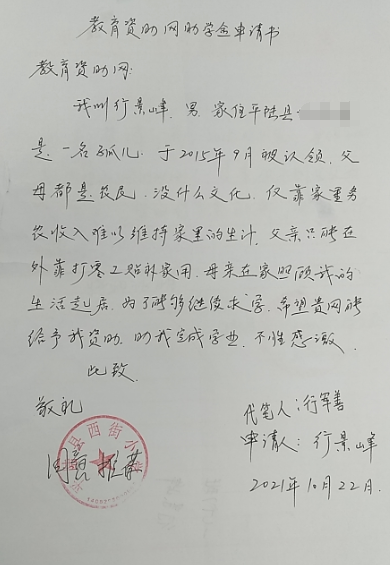 教育资助网助学金申请书
教育资助网:
我叫行景峰, 男, 家住平陆县
是一名孤儿. 于2015年9月被认领, 父
母都是农民, 没什么文化, 仅靠家里务
农收入难以维持家里的生计, 父亲只能在
外靠打零工贴补家用, 母亲在家照顾我的
生活起居, 为了能够继续求学, 希望贵网能
给予我资助, 助我完成学业, 不胜感激.
此致
敬礼
代笔人: 行军善
申请人: 行景峰
2021年10月22日.
县西街小学
同意推荐